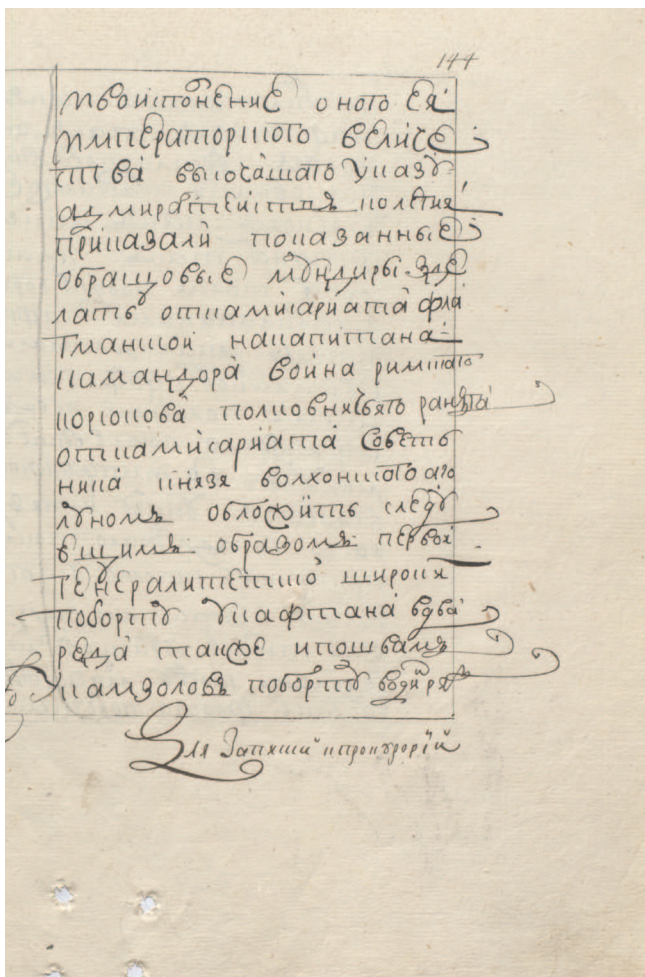 144
иво исполнение оного ея
императорского величе
ства высочашаго указу
адмиралтейская колегия
приказали показанные
образцовые мундиры зде
лать от камисариата фла
гманской на капитана
камандора война римскаго
корсокова полковничьято ранга
от камисариата советь
ника князя волхонского а по
луномъ обложить следу
ещимъ образомъ первой
генералитетско широкия
по борту у кафтана вдва
реда также и по швамъ
у камзоловъ по борту водин ря
Для запяски и прокурорий